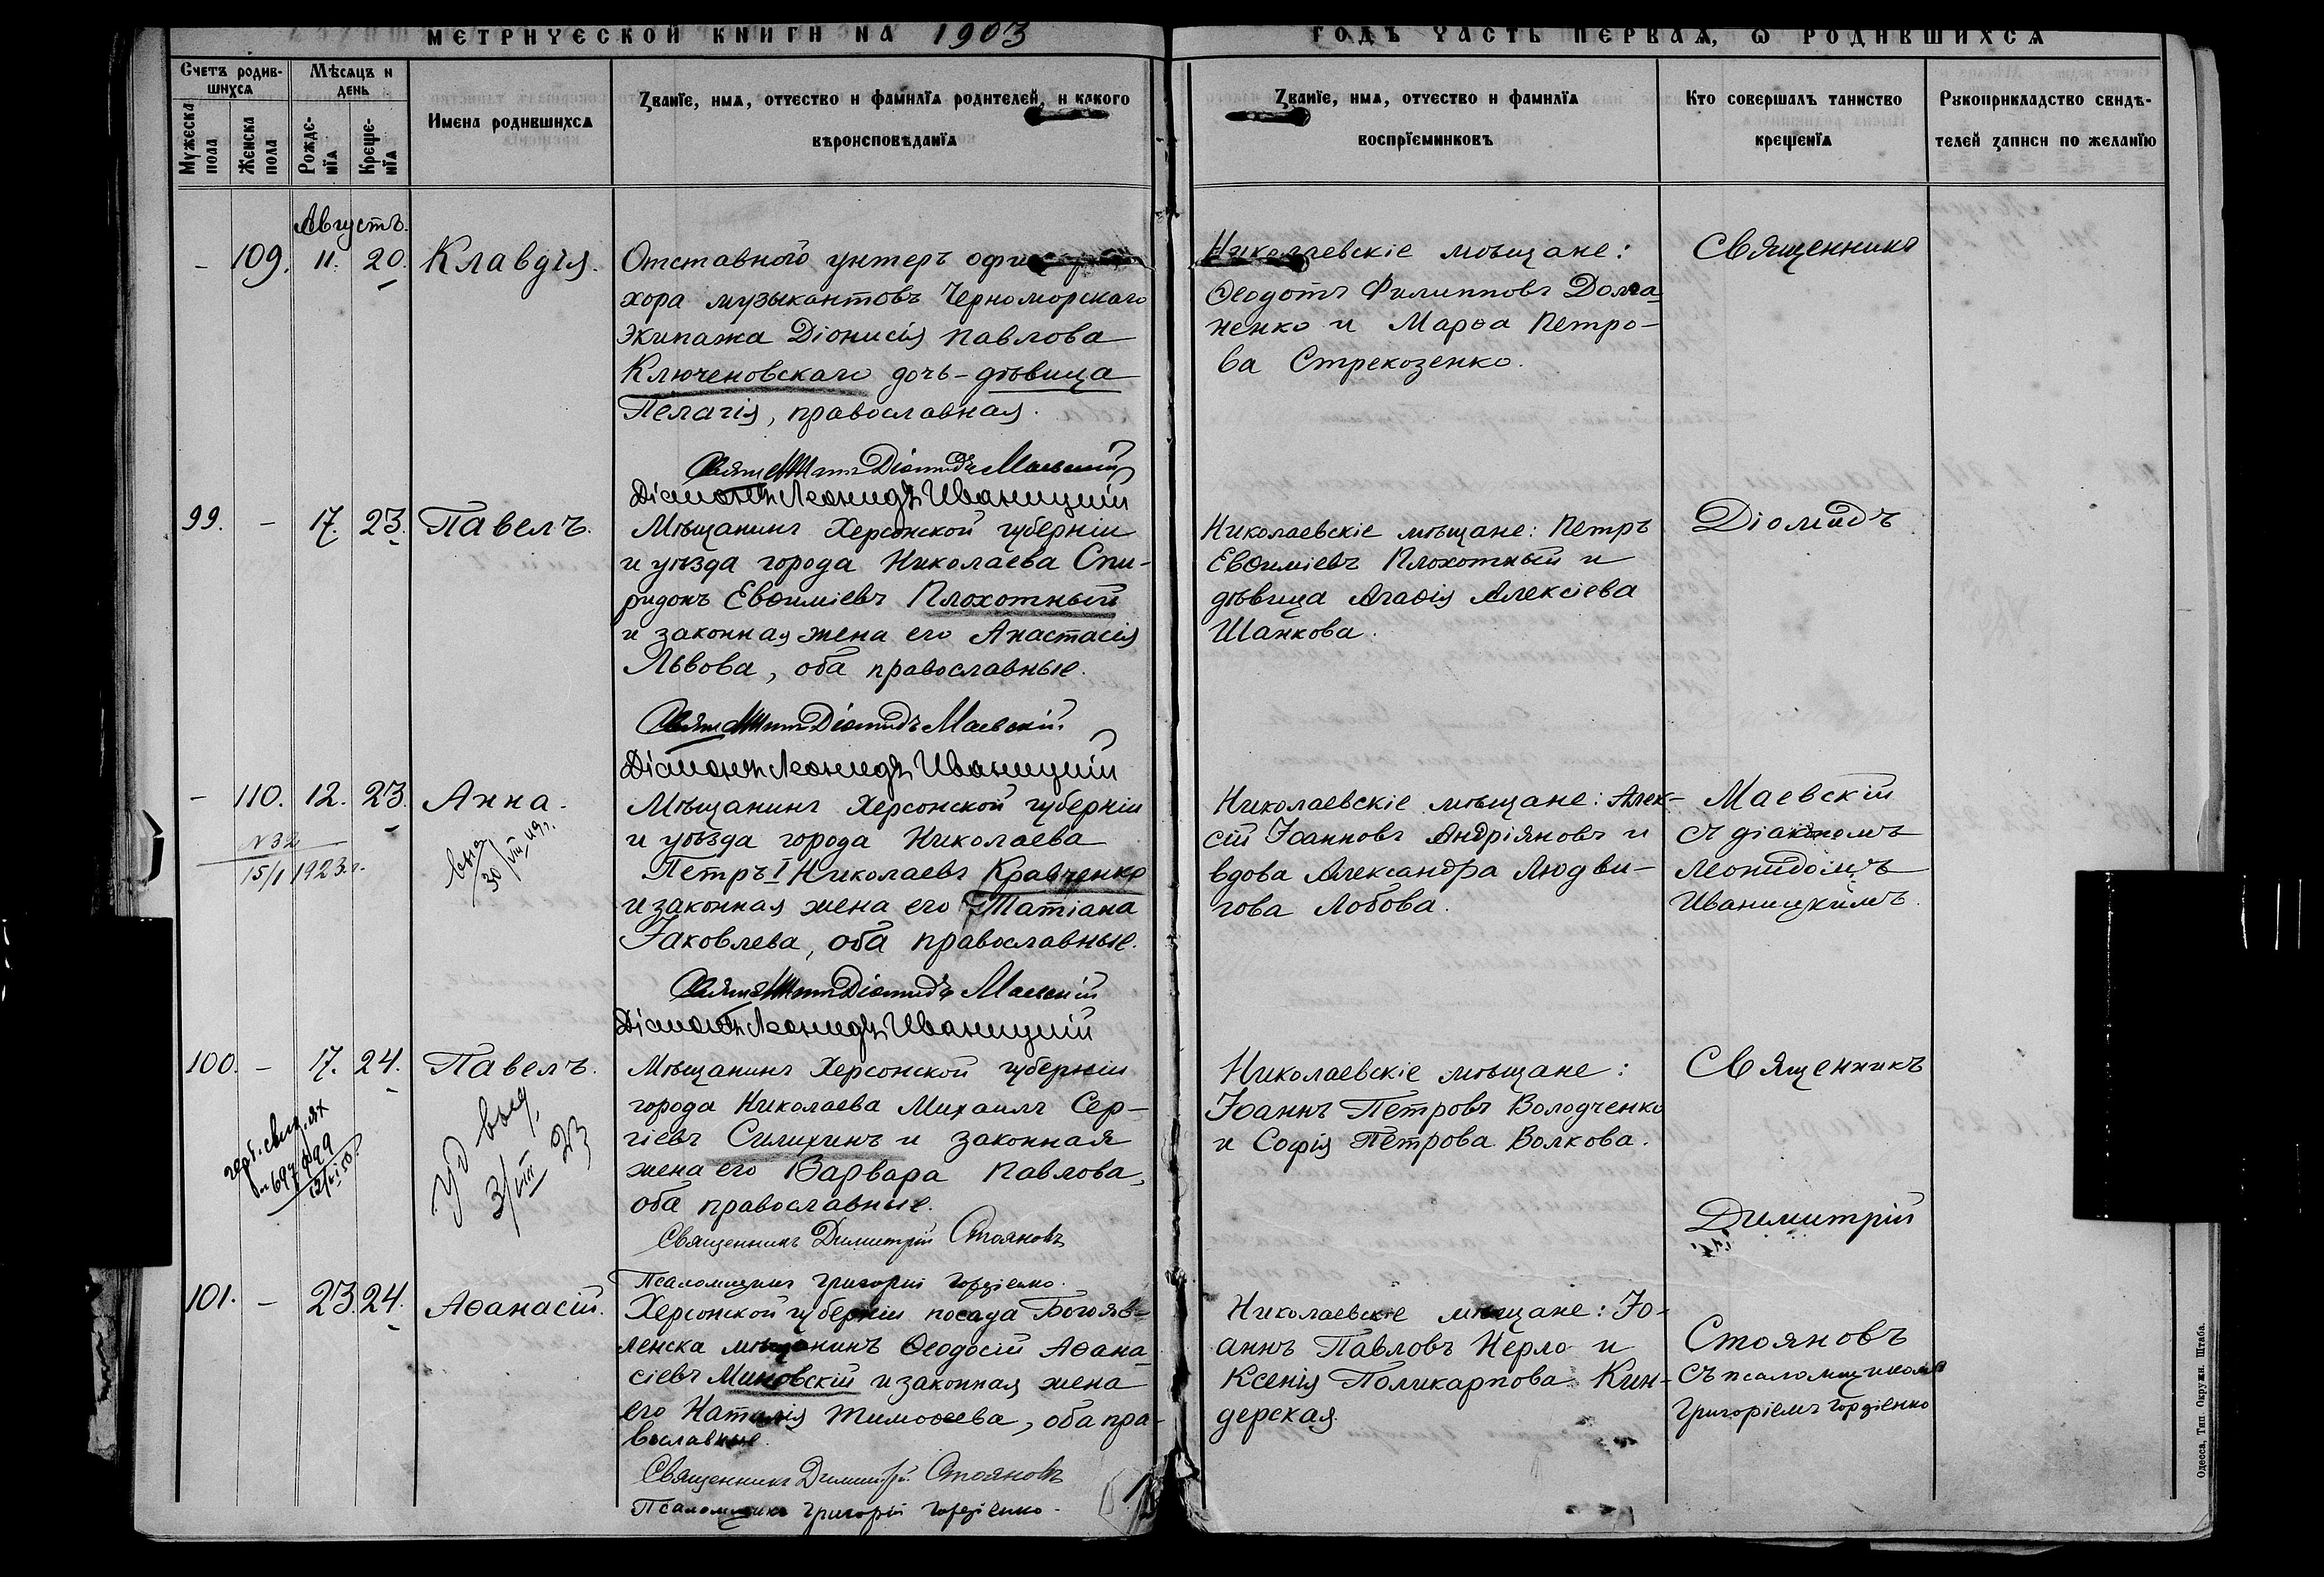 МЕТРИЧЕСКОЙ КНИГИ НА 1903
ГОДЪ ЧАСТЬ ПЕРВАЯ, Ѡ РОДИВШИХСЯ
Счетъ родив-
шихся
Мѣсяцъ и
день
Мужеска
пола
Женска
пола
Рожде-
нїя
Креще-
нїя
Имена родившихся
Званїе, имя, отчество и фамилїя родителей, и какого
вѣроисповѣданїя
Званїе, имя, отчество и фамилїя
воспрїемниковъ
Кто совершалъ таинство
крещенїя
Рукоприкладство свидѣ-
телей записи по желанїю
Августъ.
– 109. 11. 20. Клавдія.
Отставного унтеръ офицера
хора музыкантовъ Черноморскаго
Экипажа Діонисія Павлова
Ключеновскаго дочь-дѣвица
Пелагія, православная.
Діомидъ Маевскій
Діаконъ Леонидъ Иваницкій
Николаевскіе мѣщане:
Ѳеодотъ Филипповъ Долга-
ненко и Марѳа Петро-
ва Стрекозенко.
Священникъ
99. – 17. 23. Павелъ.
Мѣщанинъ Херсонской губерніи
и уѣзда города Николаева Спи-
ридонъ Евѳиміевъ Плохотный
и законная жена его Анастасія
Львова, оба православные.
Діомидъ Маевскій.
Діаконъ Леонидъ Иваницкій
Николаевскіе мѣщане: Петръ
Евѳиміевъ Плохотный и
дѣвица Агаѳія Алексіева
Шапкова.
Діомидъ
– 110. 12. 23. Анна.
N 32
15/I 1923 г.
Мѣщанинъ Херсонской губерніи
и уѣзда города Николаева
Петръ I Николаевъ Кравченко
и законная жена его Татіана
Іаковлева, оба православные.
Діомидъ Маевскій
Діаконъ Леонидъ Иваницкій
Николаевскіе мѣщане: Алек-
сій Іоанновъ Андріяновъ и
вдова Александра Людви-
гова Лобова.
Маевскій
съ діакономъ
Леонидомъ
Иваницкимъ.
100. – 17. 24. Павелъ.
выд.
3/VIII 23
Мѣщанинъ Херсонской губерніи
города Николаева Михаилъ Сер-
гіевъ Силихинъ и законная
жена его Варвара Павлова,
оба православные.
Священникъ Димитрій Стояновъ
Псаломщикъ Григорій Гордіенко.
Николаевскіе мѣщане:
Іоаннъ Петровъ Володченко
и Софія Петрова Волкова.
Священникъ
Димитрій
101. – 23. 24. Аѳанасій.
Херсонской губерніи посада Богояв-
ленска мѣщанинъ Ѳеодосій Аѳана-
сіевъ Миновскій и законная жена
его Наталія Тимоѳеева, оба пра-
вославные.
Священникъ Димитрій Стояновъ
Псаломщикъ Григорій Гордіенко.
Николаевскіе мѣщане: Іо-
аннъ Павловъ Нерло и
Ксенія Поликарпова Кин-
дерская.
Стояновъ
съ псаломщикомъ
Григоріемъ Гордіенко
Одесса, Тип. Окружн. Штаба.